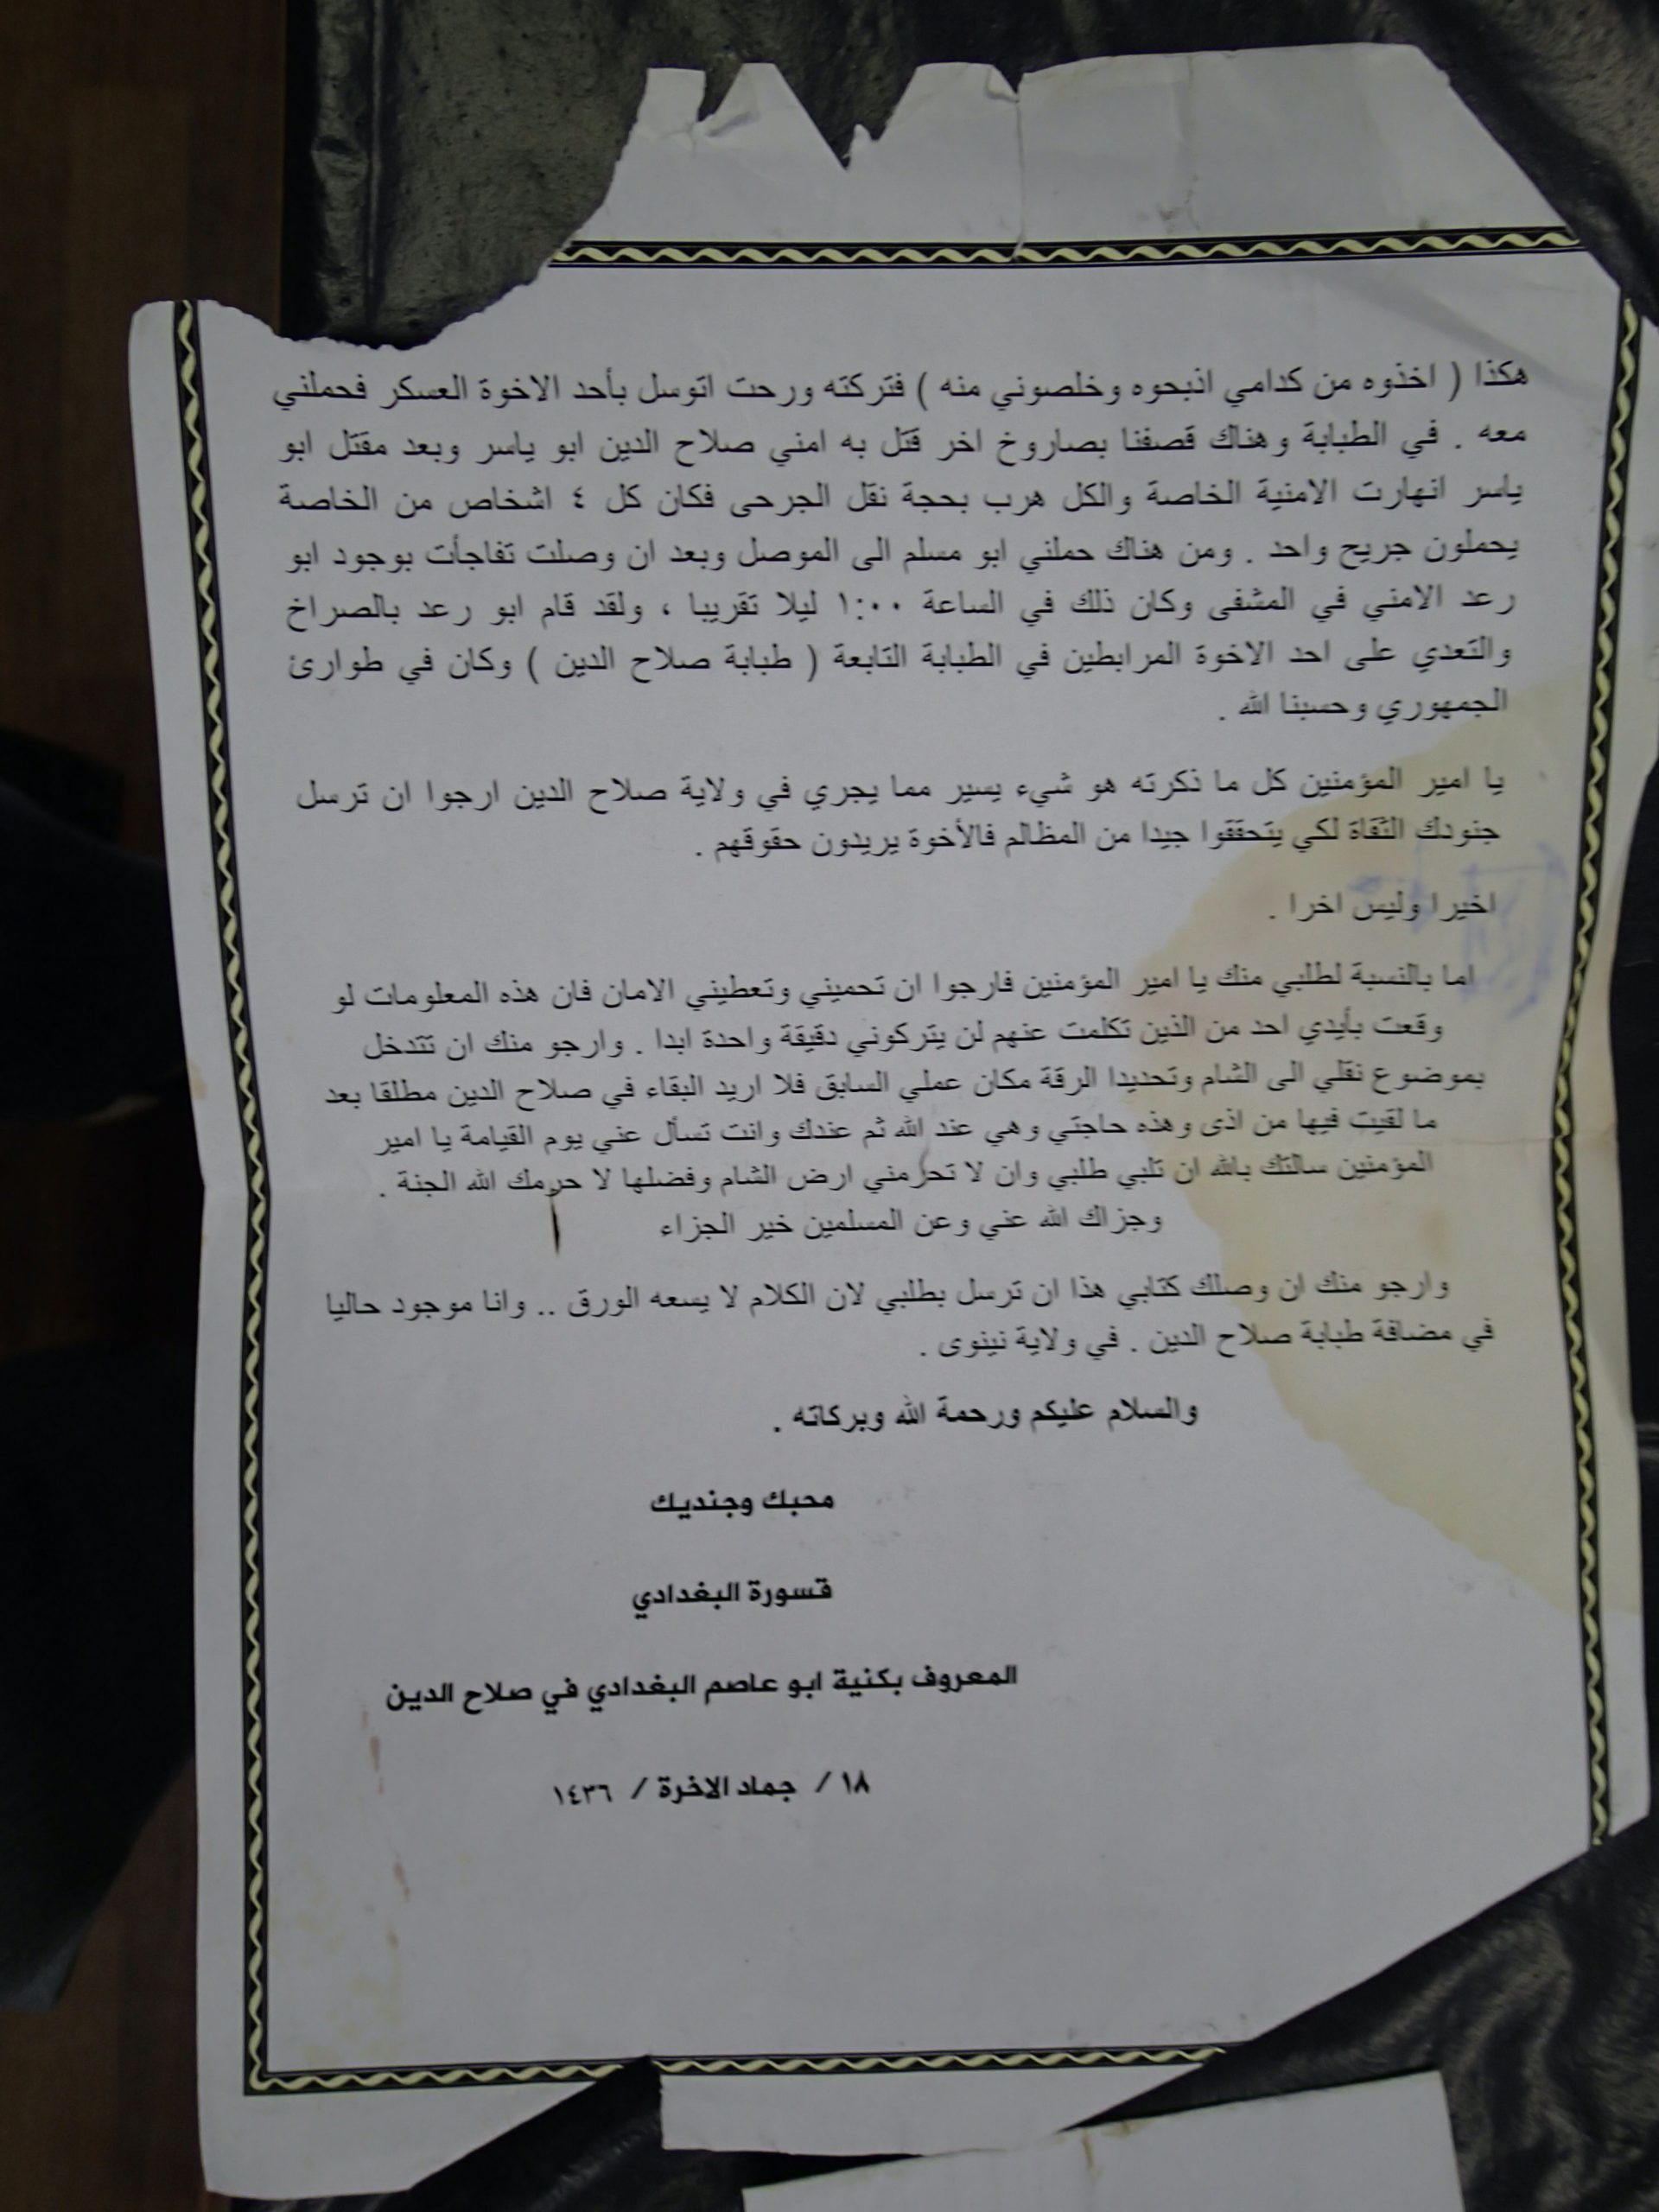 هكذا ( اخذوه من كدامي اذبحوه وخلصوني منه ) فتركته ورحت اتوسل بأحد الاخوة العسكر فحملني
معه . في الطبابة وهناك قصفنا بصاروخ اخر قتل به امني صلاح الدين ابو ياسر وبعد مقتل ابو
ياسر انهارت الامنية الخاصة والكل هرب بحجة نقل الجرحى فكان كل ٤ اشخاص من الخاصة
يحملون جريح واحد . ومن هناك حملني ابو مسلم الى الموصل وبعد ان وصلت تفاجأت بوجود ابو
رعد الامني في المشفى وكان ذلك في الساعة ١:٠٠ ليلا تقريبا ، ولقد قام ابو رعد بالصراخ
والتعدي على احد الاخوة المرابطين في الطبابة التابعة ( طبابة صلاح الدين ) وكان في طوارئ
الجمهوري وحسبنا الله .
يا امير المؤمنين كل ما ذكرته هو شيء يسير مما يجري في ولاية صلاح الدين ارجوا ان ترسل
جنودك الثقاة لكي يتحققوا جيدا من المظالم فالأخوة يريدون حقوقهم .
اخيرا وليس اخرا .
اما بالنسبة لطلبي منك يا امير المؤمنين فارجوا ان تحميني وتعطيني الامان فان هذه المعلومات لو
وقعت بأيدي احد من الذين تكلمت عنهم لن يتركوني دقيقة واحدة ابدا . وارجو منك ان تتدخل
بموضوع نقلي الى الشام وتحديدا الرقة مكان عملي السابق فلا اريد البقاء في صلاح الدين مطلقا بعد
ما لقيت فيها من اذى وهذه حاجتي وهي عند الله ثم عندك وانت تسأل عني يوم القيامة يا امير
المؤمنين سالتك بالله ان تلبي طلبي وان لا تحرمني ارض الشام وفضلها لا حرمك الله الجنة .
وجزاك الله عني وعن المسلمين خير الجزاء
وارجو منك ان وصلك كتابي هذا ان ترسل بطلبي لان الكلام لا يسعه الورق .. وانا موجود حاليا
في مضافة طبابة صلاح الدين . في ولاية نينوى .
والسلام عليكم ورحمة الله وبركاته .
محبك وجنديك
قسورة البغدادي
المعروف بكنية ابو عاصم البغدادي في صلاح الدين
١٨ / جماد الاخرة / ١٤٣٦